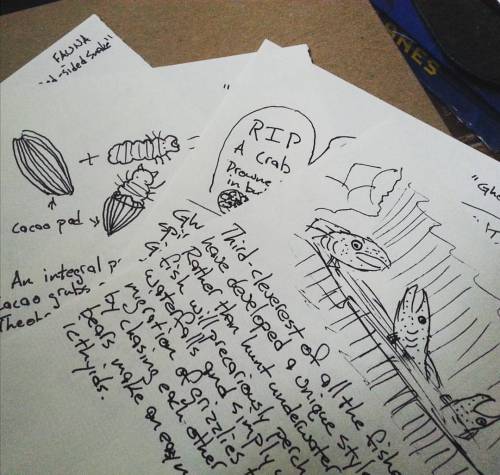 FAUNA
-sided snake"
"
+
cacao pod
An integral
cacao grubs
Theob
RIP
A crab
Drowne
in b
"Gho
Third cleverest of all the fish
have developed a unique styl
Rather than hunt underwater
fish will precariously perch
waterfalls and simply
migration of grizzlies
by chasing each other
bears make an easy
Icthyids.
NES